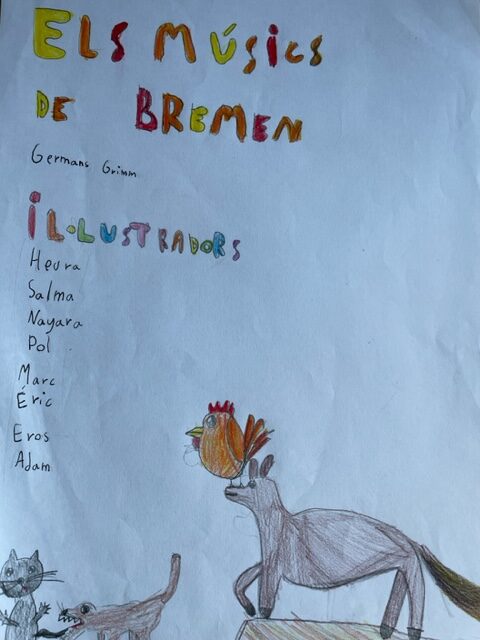 ELS MÚSICS
DE BREMEN
Germans Grimm
IL·LUSTRADORS
Heura
Salma
Nayara
Pol
Marc
Éric
Eros
Adam